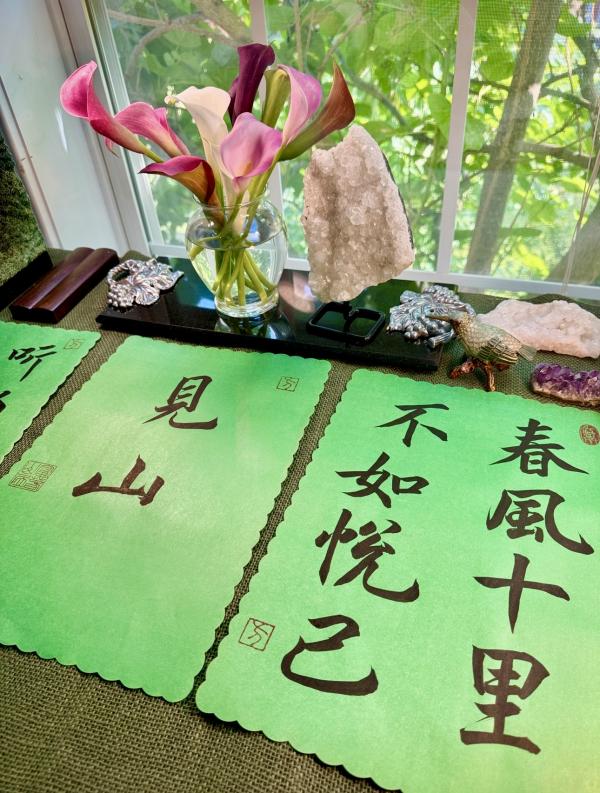 春風十里
不如悅己
見山
听